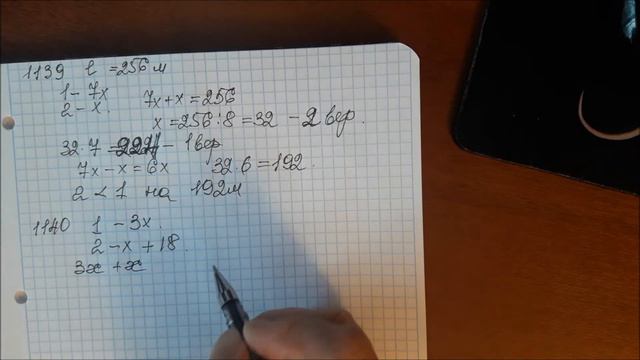 1139 l = 256 м
1 - 7x
2 - x. 7x + x = 256
x = 256 : 8 = 32 - 2 вер.
32 · 7 = 224 - 1 вер
7x - x = 6x 32 · 6 = 192.
2 < 1 на 192 м
1140 1 - 3x.
2 - x + 18.
3x + x